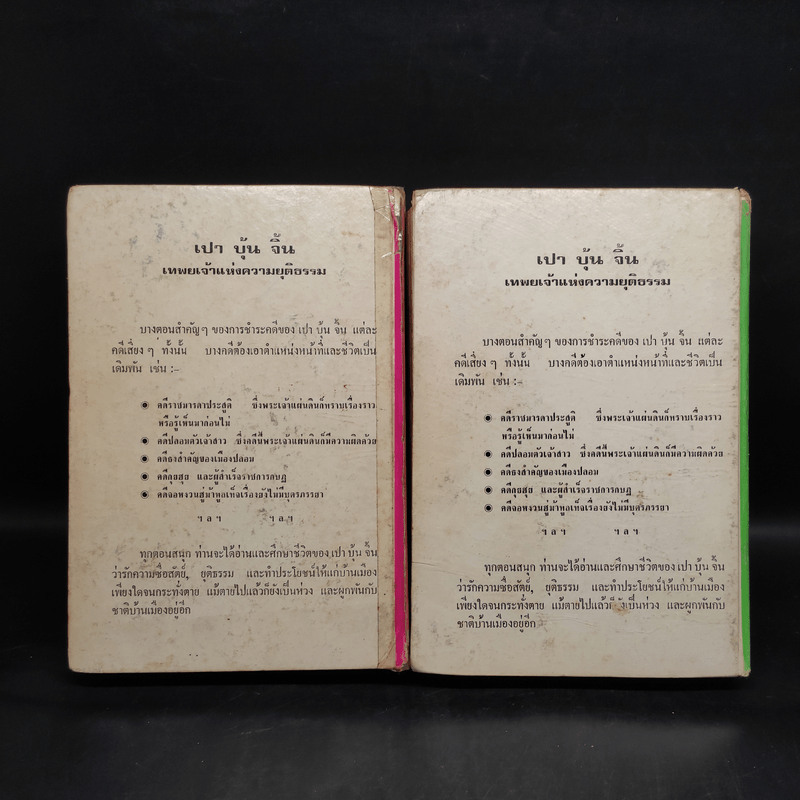 เปา บุ้น จิ้น
เทพยเจ้าแห่งความยุติธรรม
บางตอนสำคัญๆ ของการชำระคดีของ เปา บุ้น จิ้น แต่ละ
คดีเสี่ยง ๆ ทั้งนั้น บางคดีต้องเอาตำแหน่งหน้าที่และชีวิตเป็น
เดิมพัน เช่น :-
คดีราชมารดาประสูติ ซึ่งพระเจ้าแผ่นดินก็ทราบเรื่องราว
หรือรู้เห็นมาก่อนไม่
คดีปลอมตัวเจ้าสาว ซึ่งคดีนี้พระเจ้าแผ่นดินก็มีความผิดด้วย
คดีธงสำคัญของเมืองปลอม
คดีกุยสุย และผู้สำเร็จราชการกบฏ
คดีจอหงวนสู่ม้าพูลเท็จเรื่องยังไม่มีบุตรภรรยา
ฯ ล ฯ ฯ ล ฯ
ทุกตอนสนุก ท่านจะได้อ่านและศึกษาชีวิตของ เปา บุ้น จิ้น
ว่ารักความซื่อสัตย์, ยุติธรรม และทำประโยชน์ให้แก่บ้านเมือง
เพียงใดจนกระทั่งตาย แม้ตายไปแล้วก็ยังเป็นห่วง และผูกพันกับ
ชาติบ้านเมืองอยู่อีก
เปา บุ้น จิ้น
เทพยเจ้าแห่งความยุติธรรม
บางตอนสำคัญๆ ของการชำระคดีของ เปา บุ้น จิ้น แต่ละ
คดีเสี่ยง ๆ ทั้งนั้น บางคดีต้องเอาตำแหน่งหน้าที่และชีวิตเป็น
เดิมพัน เช่น :-
คดีราชมารดาประสูติ ซึ่งพระเจ้าแผ่นดินก็ทราบเรื่องราว
หรือรู้เห็นมาก่อนไม่
คดีปลอมตัวเจ้าสาว ซึ่งคดีนี้พระเจ้าแผ่นดินก็มีความผิดด้วย
คดีธงสำคัญของเมืองปลอม
คดีกุยสุย และผู้สำเร็จราชการกบฏ
คดีจอหงวนสู่ม้าพูลเท็จเรื่องยังไม่มีบุตรภรรยา
ฯ ล ฯ ฯ ล ฯ
ทุกตอนสนุก ท่านจะได้อ่านและศึกษาชีวิตของ เปา บุ้น จิ้น
ว่ารักความซื่อสัตย์, ยุติธรรม และทำประโยชน์ให้แก่บ้านเมือง
เพียงใดจนกระทั่งตาย แม้ตายไปแล้วก็ยังเป็นห่วง และผูกพันกับ
ชาติบ้านเมืองอยู่อีก